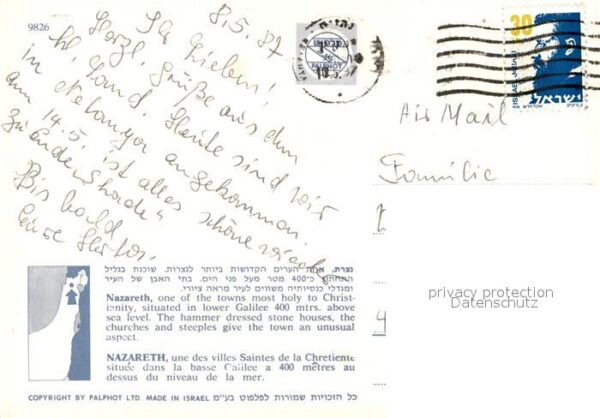 9826
8.5.87
Ihr Lieben!
Herzl. Grüße aus dem
hl. Land. Heute sind wir
in Netanya angekommen.
am 14.5. ist alles schöne wieder
zu Ende "schade"
Bis bald
30
ISRAEL
ישראל
נהריה
Air Mail
Familie
privacy protection
Datenschutz
נצרת, אחת הערים הקדושות ביותר לנצרות. שוכנת בגליל
התחתון כ-400 מטר מעל פני הים. בתי האבן של העיר
ומגדלי כנסיותיה משווים לעיר מראה ציורי.
Nazareth, one of the towns most holy to Christ-
ianity, situated in lower Galilee 400 mtrs. above
sea level. The hammer dressed stone houses, the
churches and steeples give the town an unusual
aspect.
NAZARETH, une des villes Saintes de la Chretiente
située dans la basse Galilee a 400 mêtres au
dessus du niveau de la mer.
COPYRIGHT BY PALPHOT LTD. MADE IN ISRAEL כל הזכויות שמורות לפלפוט בע"מ